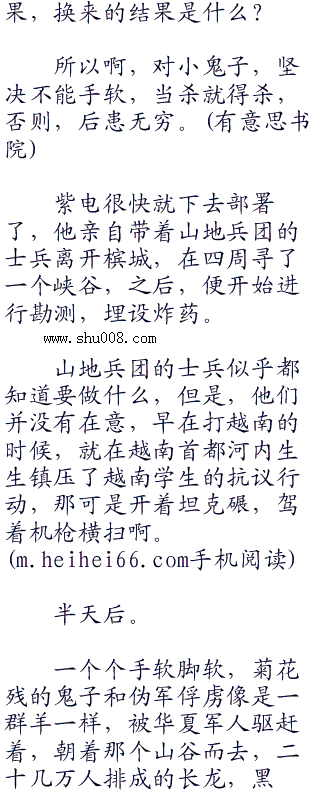 果，换来的结果是什么？
所以啊，对小鬼子，坚
决不能手软，当杀就得杀，
否则，后患无穷。(有意思书
院)
紫电很快就下去部署
了，他亲自带着山地兵团的
士兵离开槟城，在四周寻了
一个峡谷，之后，便开始进
行勘测，埋设炸药。
www.shu008.com
山地兵团的士兵似乎都
知道要做什么，但是，他们
并没有在意，早在打越南的
时候，就在越南首都河内生
生镇压了越南学生的抗议行
动，那可是开着坦克碾，驾
着机枪横扫啊。
(m.heihei66.com手机阅读)
半天后。
一个个手软脚软，菊花
残的鬼子和伪军俘虏像是一
群羊一样，被华夏军人驱赶
着，朝着那个山谷而去，二
十几万人排成的长龙，黑